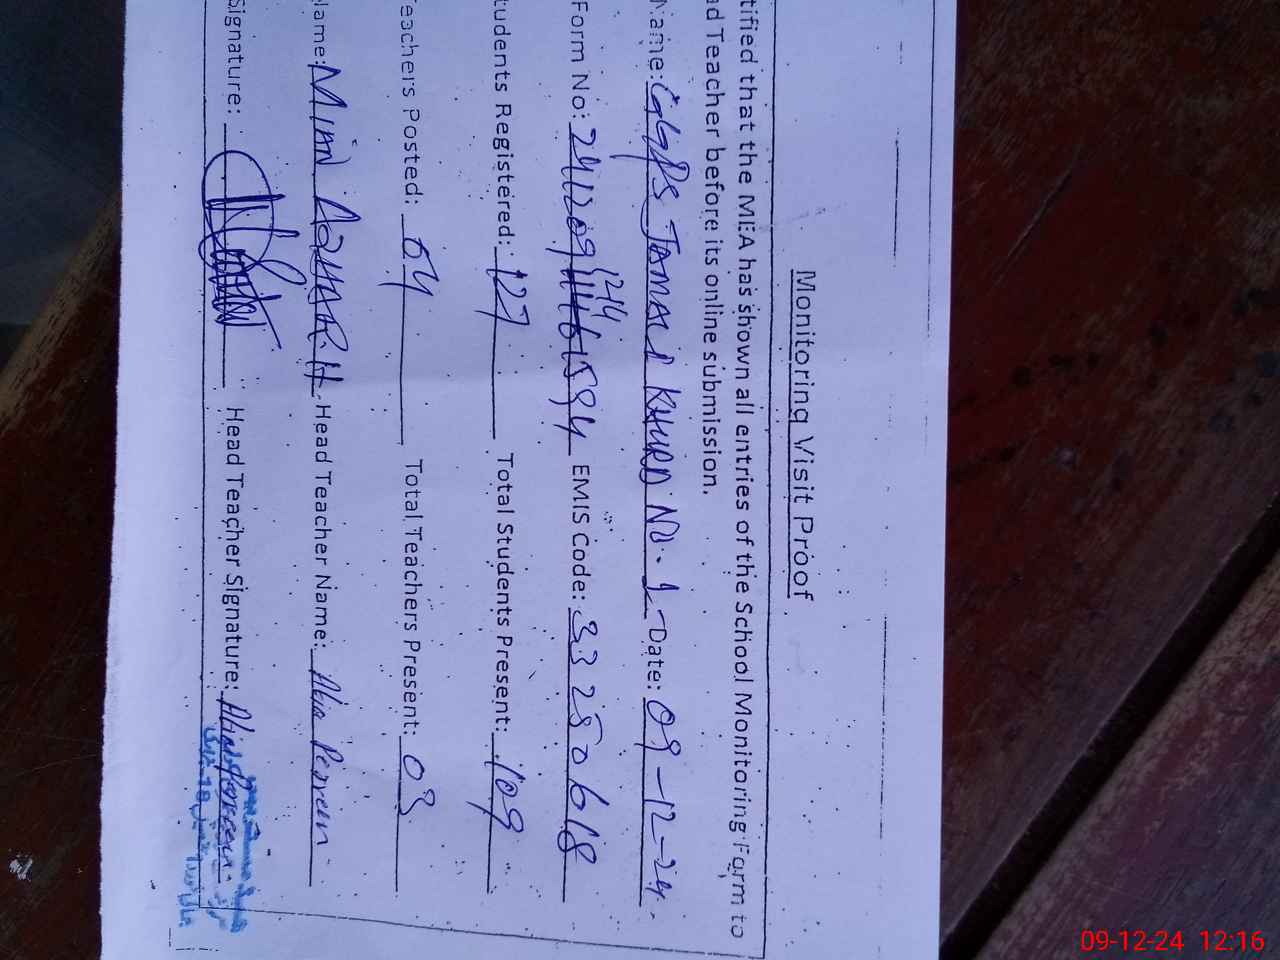 Monitoring Visit Proof
tified that the MEA has shown all entries of the School Monitoring Form to
ad Teacher before its online submission.
Name: GGPS JAMAL KHURD NO. 1 Date: 09-12-24.
Form No: 241209 144 1594 EMIS Code: 33250618
tudents Registered: 127 Total Students Present: 109
eachers Posted: 04 Total Teachers Present: 03
Name: MIAN AZHAR H Head Teacher Name: Alia Perveen
Signature: Head Teacher Signature:
09-12-24 12:16